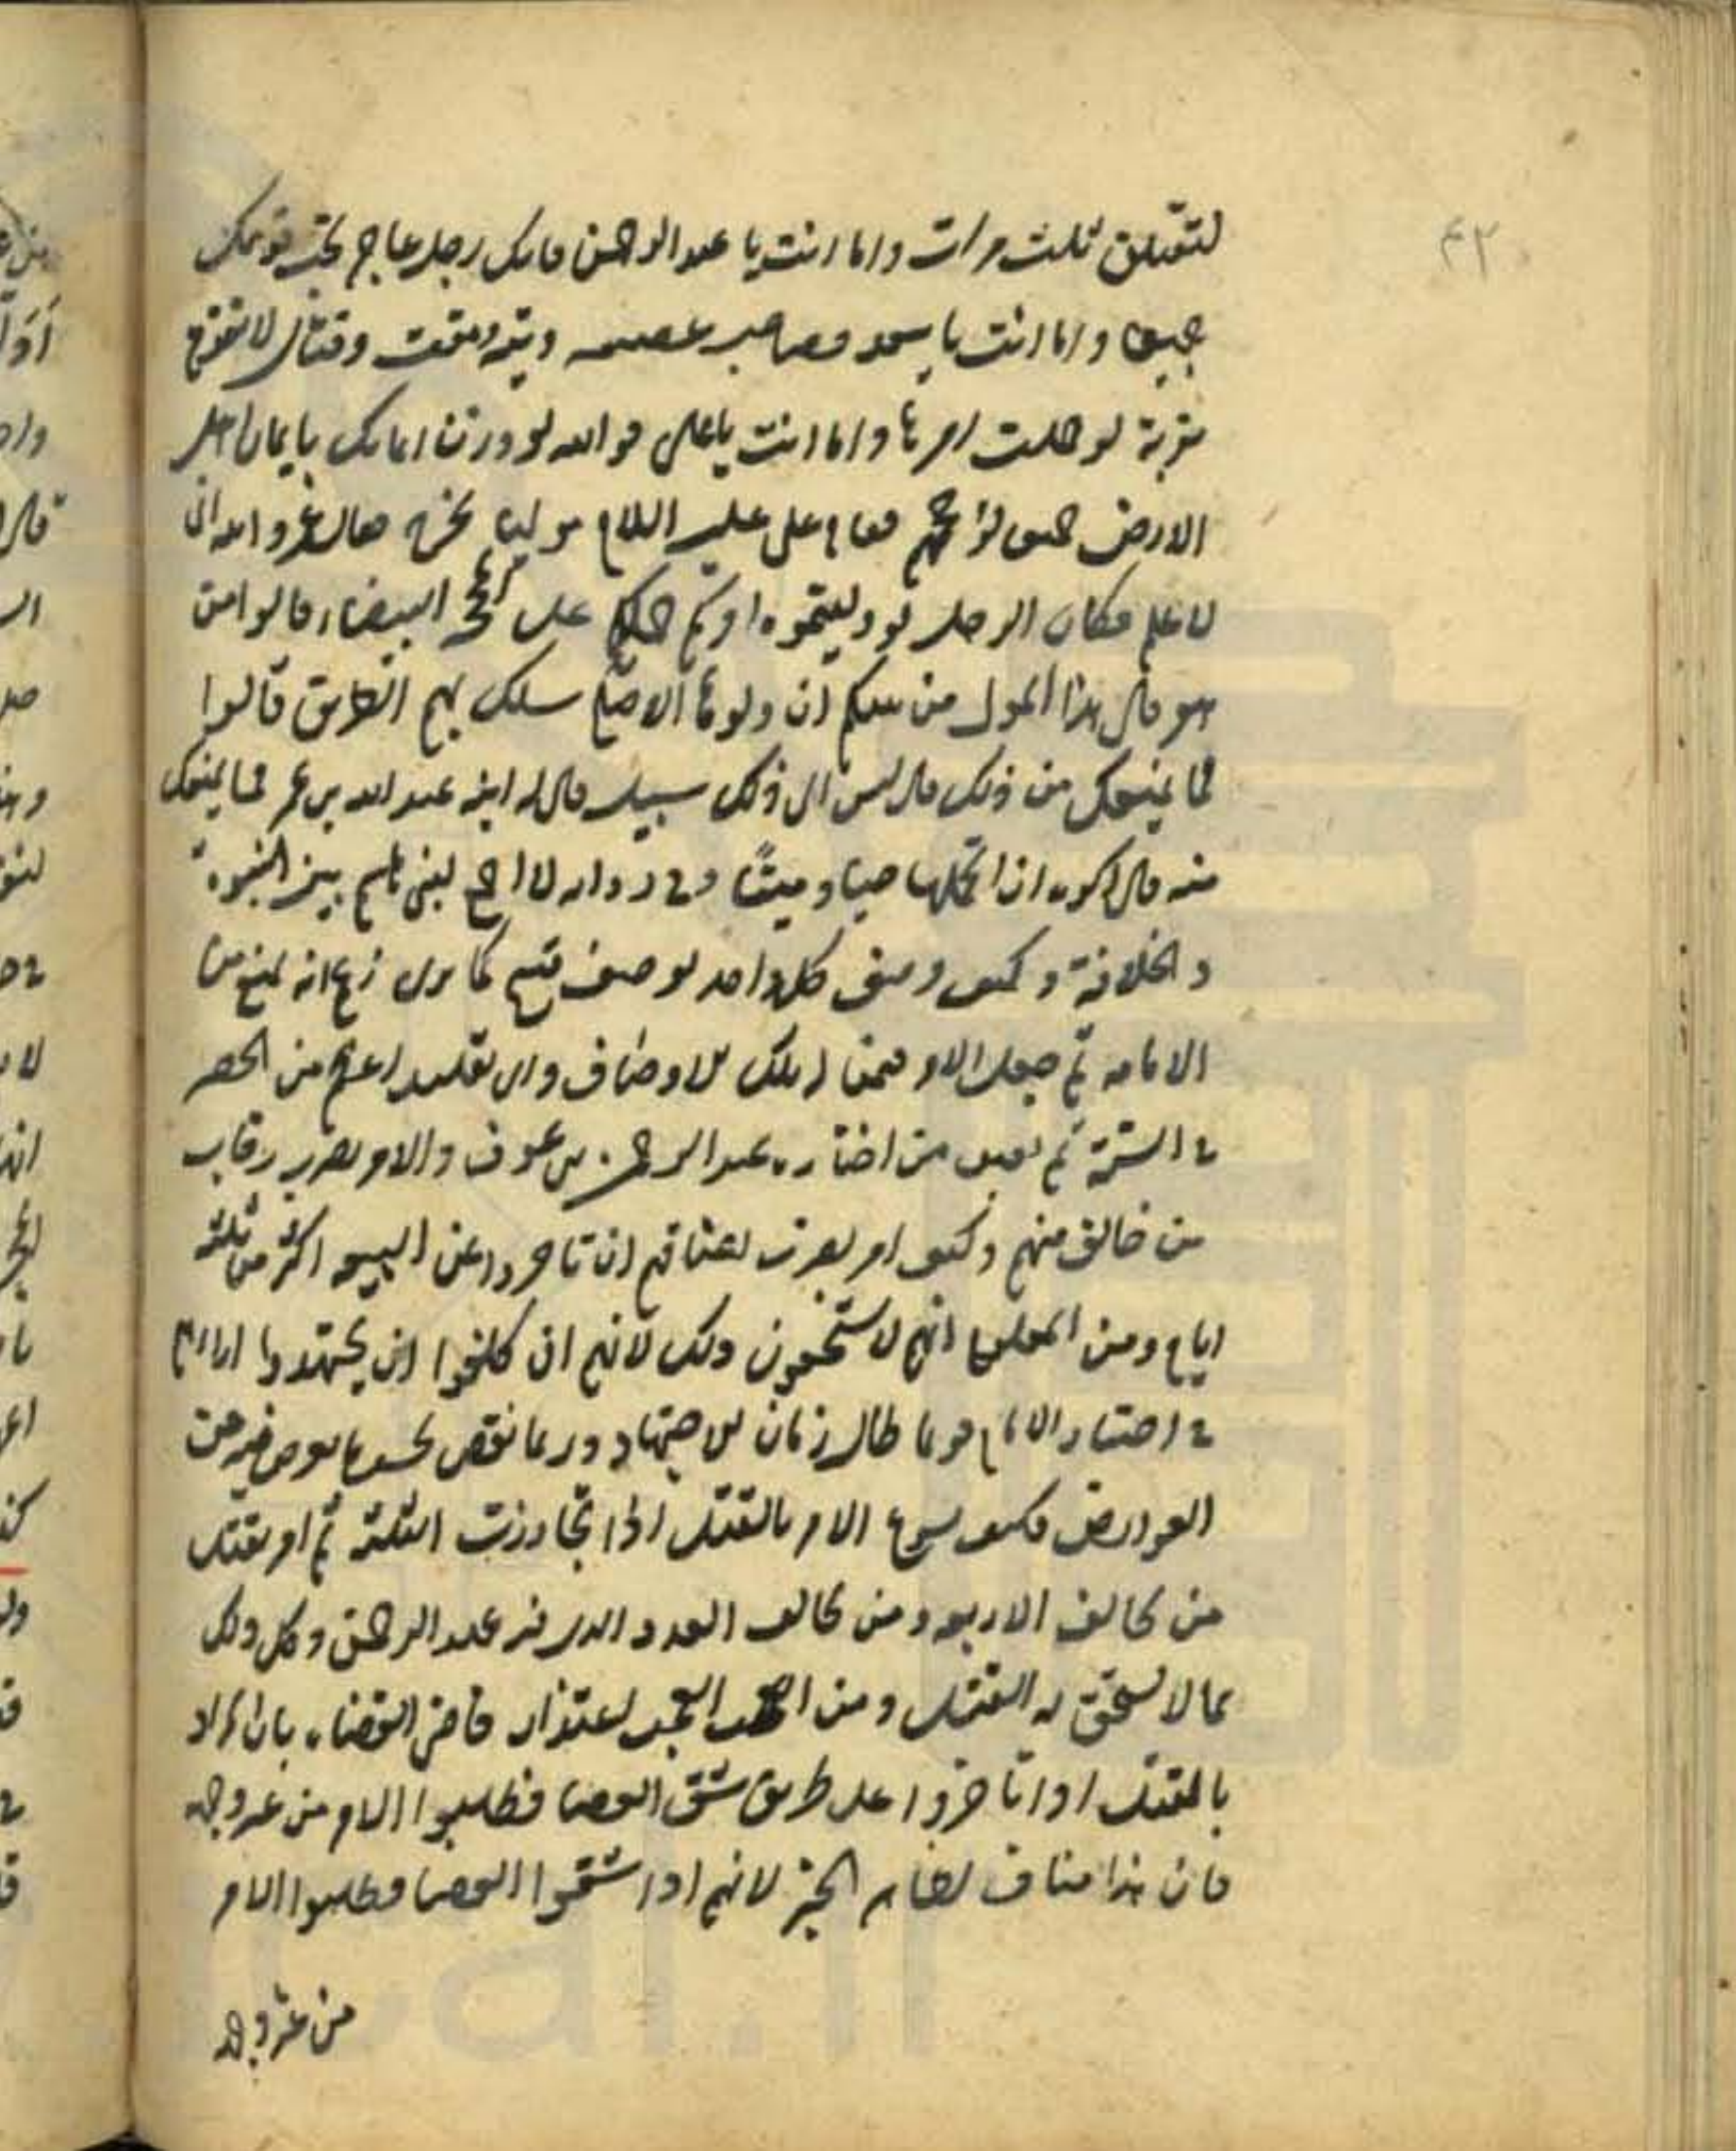 لتقتلن ثلث مرات واما انت يا عبد الرحمن فانك رجل عاجز تحب قومك
جميعا واما انت يا سعد فصاحب عصبية وفتنة ومقنب وقتال لا تقوم
بقرية لو حملت امرها واما انت يا علي فوالله لو وزن ايمانك بايمان اهل
الارض جميعا لرجحهم فقام علي عليه السلام موليا يخرج فقال عمر والله اني
لاعلم مكان الرجل لو وليتموه امركم حملكم على المحجة البيضاء قالوا من
هو قال هذا المولي من بينكم ان ولوها الاجلح سلك بهم الطريق قالوا
فما يمنعك من ذلك قال ليس الى ذلك سبيل قال له ابنه عبد الله بن عمر فما يمنعك
منه قال اكره ان اتحملها حيا وميتا وفي رواية لا اجمع لبني هاشم بين النبوة
والخلافة وكيف وصف كل واحد بوصف قبيح كما ترى زعم انه يمنع من
الامامة ثم جعل الامر فيمن له تلك الاوصاف واي تقليد اعظم من الحصر
في الستة ثم تعيين من اختاره عبد الرحمن بن عوف والامر بضرب رقاب
من خالف منهم وكيف امر بضرب اعناقهم ان تاخروا عن البيعة اكثر من ثلثة
ايام ومن المعلوم انهم لا يستحقون ذلك لانهم ان كلفوا ان يجتهدوا اراءهم
في اختيار الامام فربما طال زمان الاجتهاد وربما نقص بحسب ما يعرض فيه من
العوارض فكيف يسوغ الامر بالقتل اذا تجاوزت الثلثة ثم امر بقتل
من يخالف الاربعة ومن يخالف العدد الذي فيه عبد الرحمن وكل ذلك
مما لا يستحق به القتل ومن العجب اعتذار قاضي القضاة بان المراد
بالقتل اذا تاخروا على طريق شق العصا وطلبوا الامر من غير وجهه
فان هذا مناف لظاهر الخبر لانهم اذا شقوا العصا وطلبوا الامر
من غير وجهه